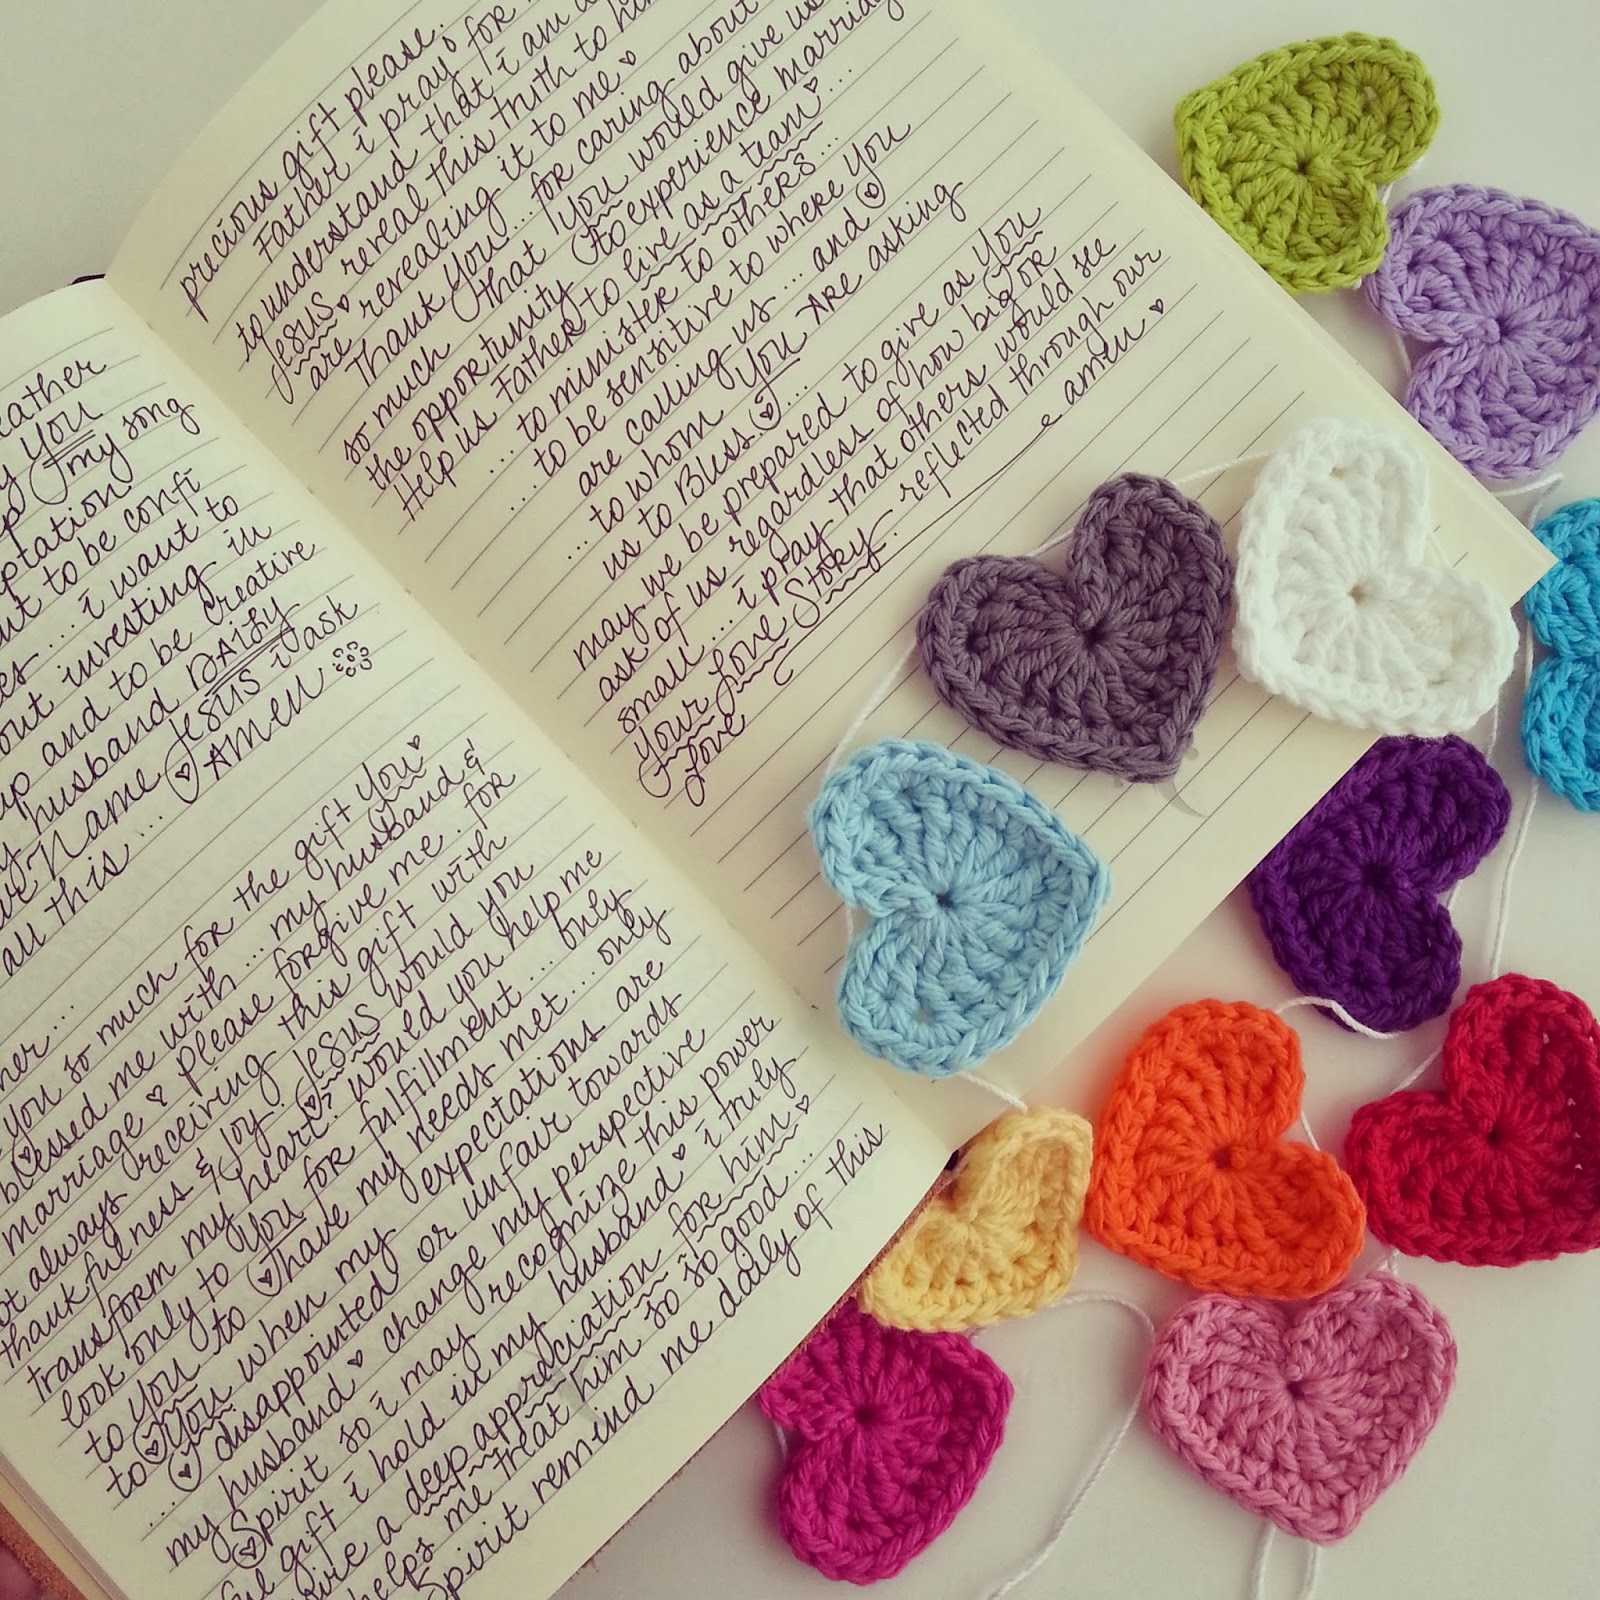 eather
y You
my song
ptation
to be confi
i want to
out investing in
up and to be creative
husband DAILY
Name Jesus i ask
all this... AMEN
her...
you so much for the gift You
blessed me with... my husband &
marriage please forgive me.. for
not always receiving this gift with
thankfulness & joy. Jesus would you
transform my heart? would you help me
look only to You for fulfillment.... only
to You to have my needs met... only
to You when my expectations are
... disappointed or unfair towards
my husband change my perspective
Spirit so i may recognize this power
ful gift i hold in my husband i truly
a deep appreciation for him
helps me treat him so so good....
Spirit remind me daily of this
precious gift please.
Father i pray for
to understand that i am
Jesus reveal this truth to hi
are revealing it to me
Thank You... for caring about
so much that You would give us
the opportunity to experience marriag
Help us Father to live as a team...
... to minister to others...
... to be sensitive to where You
are calling us... and
... to whom You Are asking
us to Bless.... to give as You
may we be prepared
ask of us regardless of how big or
small.... i pray that others would see
Your Love Story. reflected through our
Love amen